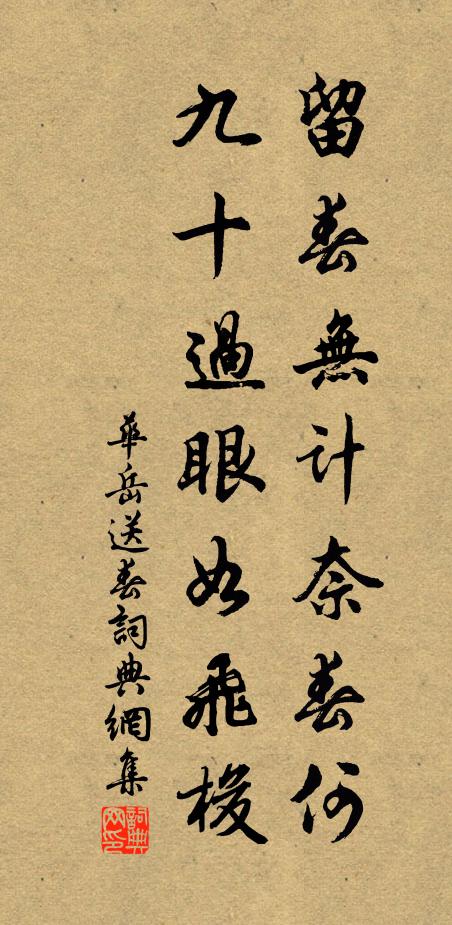 留春無计奈春何
九十過眼如飛梭
華岳送春詞典網集
詞典网印